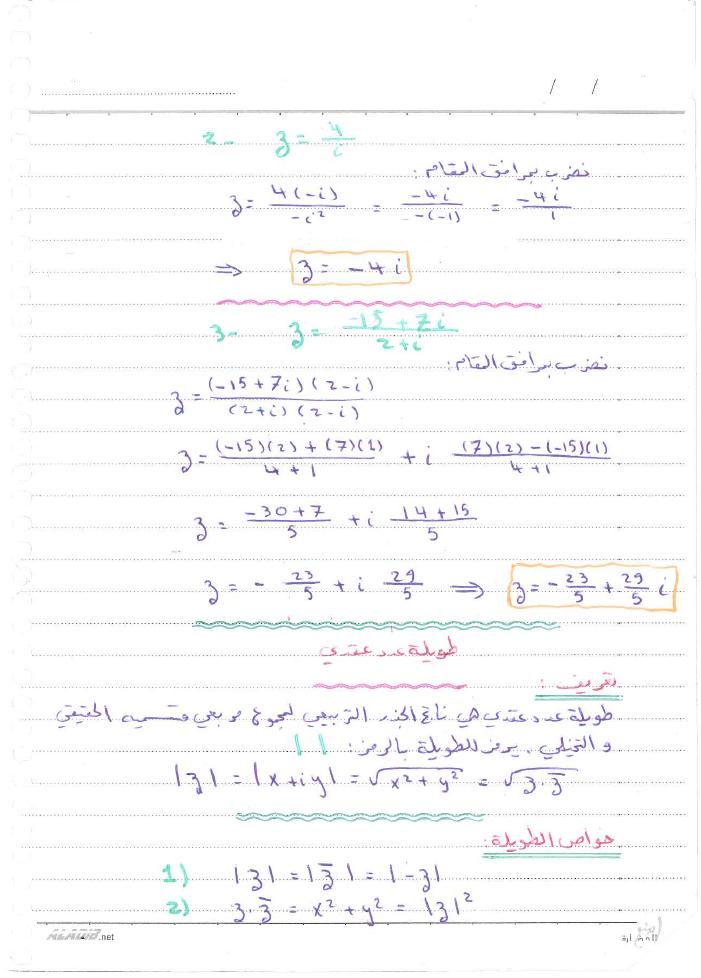 / /
2- z = 4/i
نضرب بمرافق المقام:
z = 4(-i)/-i² = -4i/-(-1) = -4i/1
⇒ z = -4i
3- z = -15+7i/2+i
نضرب بمرافق المقام:
z = (-15+7i)(2-i)/(2+i)(2-i)
z = (-15)(2)+(7)(1)/4+1 + i (7)(2)-(-15)(1)/4+1
z = -30+7/5 + i 14+15/5
z = - 23/5 + i 29/5 ⇒ z = - 23/5 + 29/5 i
طويلة عدد عقدي
تعريف:
طويلة عدد عقدي هي ناتج الجذر التربيعي لمجموع مربعي قسميه الحقيقي
و التخيلي. يرمز للطويلة بالرمز: | |
|z| = |x+iy| = √x²+y² = √z·z̄
خواص الطويلة:
1) |z| = |z̄| = |-z|
2) z·z̄ = x²+y² = |z|²
ALADIB.net